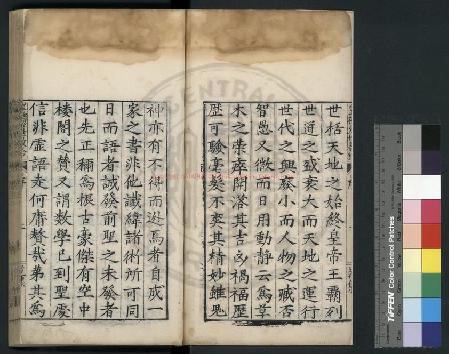 世括天地之始終皇帝王霸列
世道之盛衰大而天地之運行
世代之興廢小而人物之臧否
智愚又微而日用動静云為草
木之榮瘁開落其吉凶禍福歷
歷可驗毫髮不爽其精妙雖鬼
神亦有不得而逃焉者自成一
家之書非他讖緯諸術所可同
日而語者誠發前聖之未發者
也先正稱為振古豪傑有空中
樓閣之贊又謂數學已到聖處
信非虛語走何庸贅哉第其為
CENTRAL
TIFFEN Color Control Patches